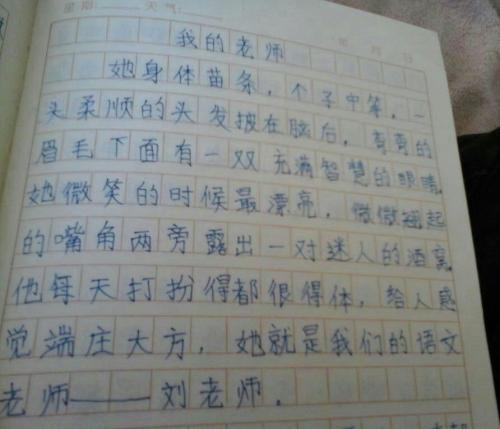 星期:——天气:—— 年 月 日
我的老师
她身体苗条，个子中等，一
头柔顺的头发披在脑后，弯弯的
眉毛下面有一双充满智慧的眼睛
她微笑的时候最漂亮，微微翘起
的嘴角两旁露出一对迷人的酒窝
他每天打扮得都很得体，给人感
觉端庄大方，她就是我们的语文
老师——刘老师．